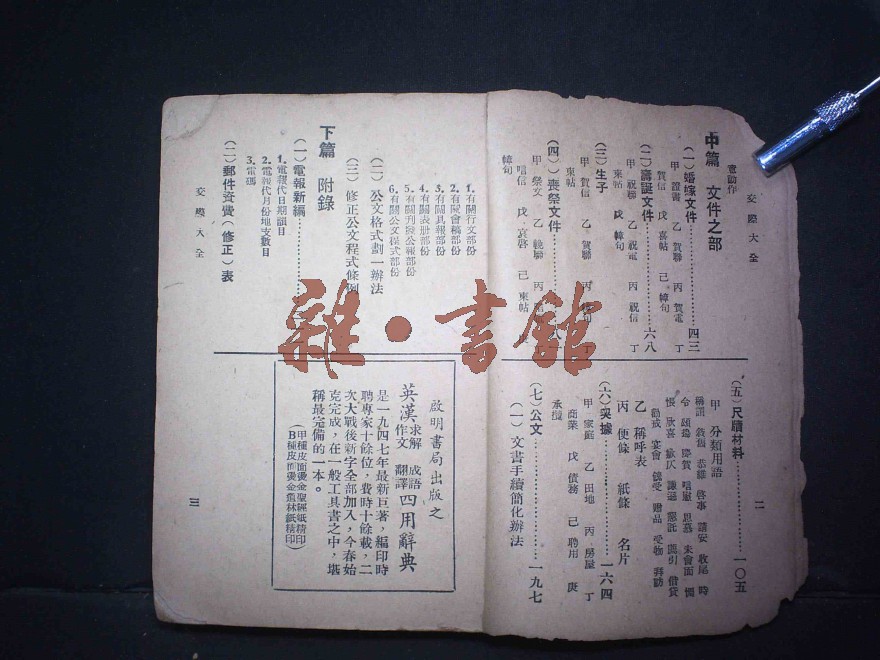 交際大全
中篇 文件之部
(一)婚嫁文件……四三
甲 證書 乙 賀聯 丙 賀電 丁
賀信 戊 喜帖 己 幛句
(二)壽誕文件……六八
甲 祝聯 乙 祝電 丙 祝信 丁
柬帖 戊 幛句
(三)生子
甲 賀信 乙 賀聯 丙
柬帖
(四)喪祭文件
甲 祭文 乙 輓聯 丙
唁信 戊 哀啓 己 柬帖
幛句
二
(五)尺牘材料……一〇五
甲 分類用語
乙 稱呼表
丙 便條 紙條 名片
(六)契據……一六四
甲 家庭 乙 田地 丙 房屋 丁
商業 戊 債務 己 聘用 庚
承攬
(七)公文……一九七
(一)文書手續簡化辦法
1.有關行文部份
2.有關會稿部份
3.有關具報部份
4.有關表册部份
5.有關刋發公報部份
6.有關公文程式部份
(二)公文格式劃一辦法
(三)修正公文程式條例
下篇 附錄
(一)電報新編
1.電報代日期韻目
2.電報代月份地支數目
3.電碼
(二)郵件資費(修正)表
交際大全
啟明書局出版之
英漢求解 作文 成語 翻譯四用辭典
是一九四七年最新巨著,編印時
聘專家十餘位,費時十餘載,二
次大戰後新字全部加入,今春始
克完成,在一般工具書之中,堪
稱最完備的一本。
(甲種皮面燙金聖經紙精印
B種皮面燙金道林紙精印)
三
雜·書館